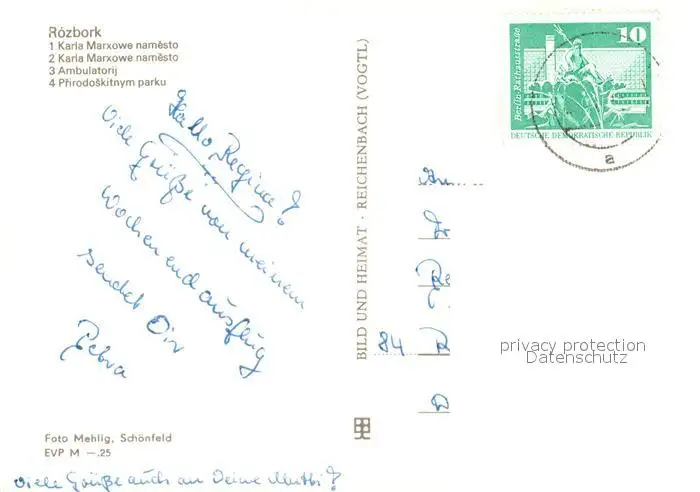 Rózbork
1 Karla Marxowe naměsto
2 Karla Marxowe naměsto
3 Ambulatorij
4 Přirodoškitnym parku
Hallo Regina!
Viele Grüße von meinem
Wochenendausflug
sendet Dir
Petra
Foto Mehlig, Schönfeld
EVP M —.25
Viele Grüße auch an Deine Mutti!
BILD UND HEIMAT · REICHENBACH (VOGTL)
Berlin-Rathausstraße
10
DEUTSCHE DEMOKRATISCHE REPUBLIK
a
84 R
privacy protection
Datenschutz